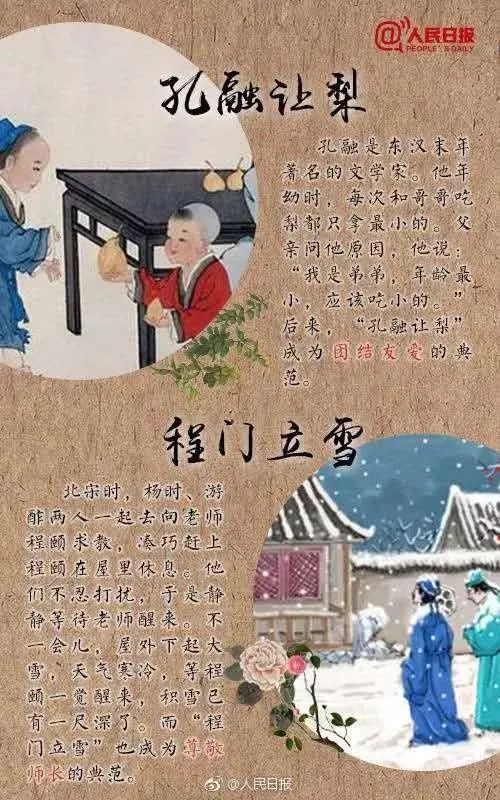 @人民日报
PEOPLE'S DAILY
孔融让梨
孔融是东汉末年
著名的文学家。他年
幼时，每次和哥哥吃
梨都只拿最小的。父
亲问他原因，他说：
“我是弟弟，年龄最
小，应该吃小的。”
后来，“孔融让梨”
成为团结友爱的典
范。
程门立雪
北宋时，杨时、游
酢两人一起去向老师
程颐求教，凑巧赶上
程颐在屋里休息。他
们不忍打扰，于是静
静等待老师醒来。不
一会儿，屋外下起大
雪，天气寒冷，等程
颐一觉醒来，积雪已
有一尺深了。而“程
门立雪”也成为尊敬
师长的典范。
@人民日报